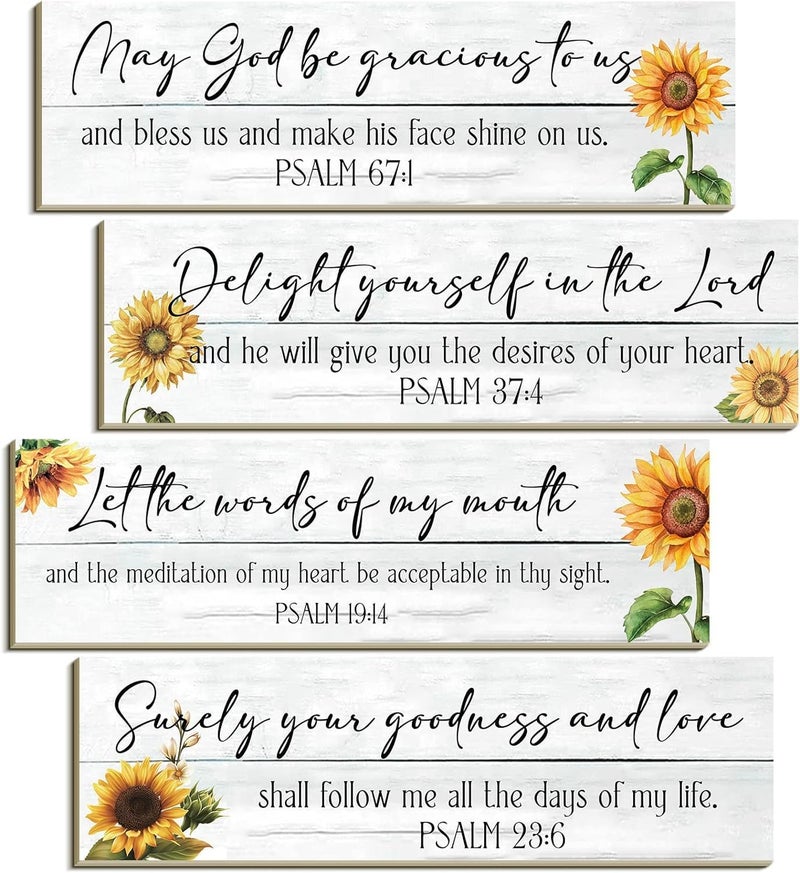 May God be gracious to us
and bless us and make his face shine on us.
PSALM 67:1
Delight yourself in the Lord
and he will give you the desires of your heart.
PSALM 37:4
Let the words of my mouth
and the meditation of my heart be acceptable in thy sight.
PSALM 19:14
Surely your goodness and love
shall follow me all the days of my life.
PSALM 23:6